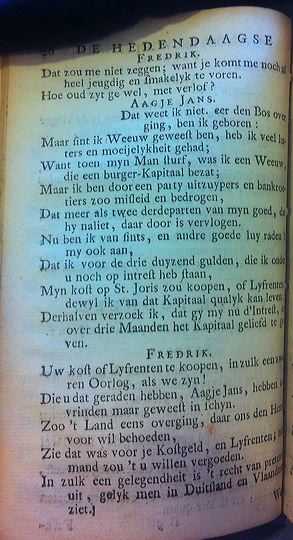 20 DE HEDENDAAGSE
FREDRIK.
Dat zou me niet zeggen; want je komt me noch al
heel jeugdig en ſmakelyk te voren.
Hoe oud zyt ge wel, met verlof?
AAGJE JANS.
Dat weet ik niet. eer den Bos over
ging, ben ik geboren:
Maar ſint ik Weeuw geweeſt ben, heb ik veel
ters en moeijelykheit gehad;
Want toen myn Man ſturf, was ik een Weeuw,
die een burger-Kapitaal bezat;
Maar ik ben door een party uitzuypers en bankro
tiers zoo miſleid en bedrogen,
Dat meer als twee derdeparten van myn goed, da
hy naliet, daar door is vervlogen.
Nu ben ik van ſints, en andere goede luy raden
my ook aan,
Dat ik voor de drie duyzend gulden, die ik onde
u noch op intreſt heb ſtaan,
Myn koſt op St. Joris zou koopen, of Lyfrenten,
dewyl ik van dat Kapitaal qualyk kan leven:
Derhalven verzoek ik, dat gy my nu d'Intreſt, e
over drie Maanden het Kapitaal geliefd te g
ven.
FREDRIK.
Uw koſt of Lyfrenten te koopen, in zulk een
ren Oorlog, als we zyn!
Die u dat geraden hebben, Aagje Jans, hebben
vrinden maar geweeſt in ſchyn.
Zoo 't Land eens overging, daar ons den Heme
voor wil behoeden,
Zie dat was voor je Koſtgeld, en Lyfrenten;
mand zou 't u willen vergoeden.
In zulk een gelegendheit is 't recht van preten
uit, gelyk men in Duitſland en Vlaand
ziet.]